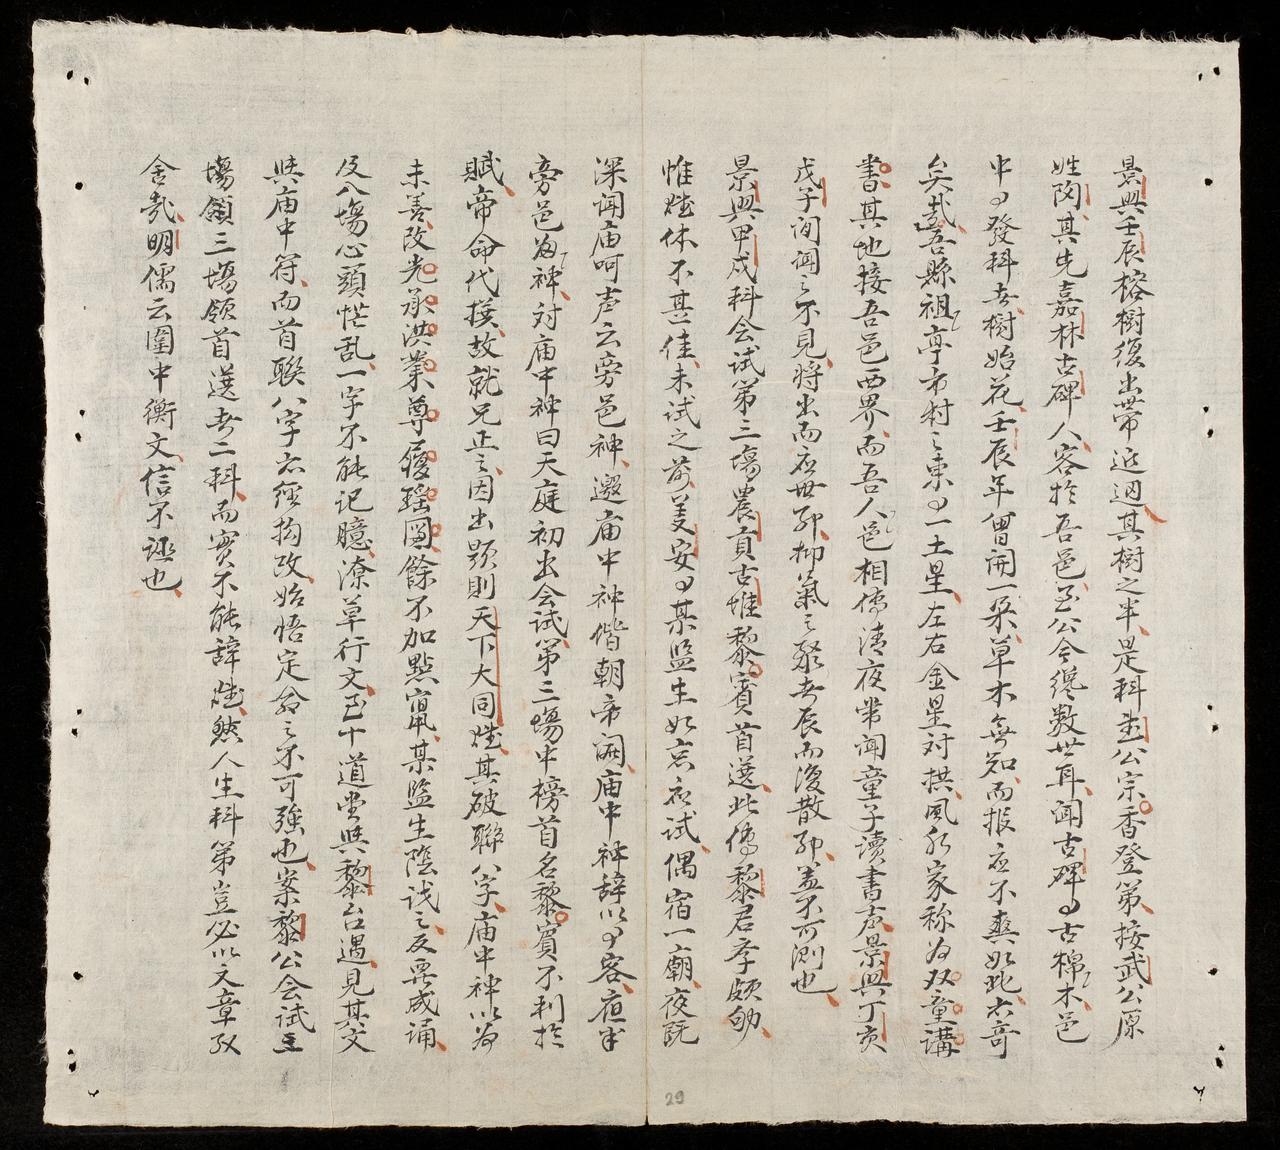 景興壬辰榕樹復出帶近過其樹之半是科武公宗香登第按武公原
姓陶其先嘉林古碑人客於吾邑至公今纔數世耳聞古碑有古棉木邑
中有發科者樹始花壬辰年曾開一朶草木無知而报应不爽如此亦奇
矣哉吾縣祖亭市村之東有一土星左右金星対拱風水家称为双童講
書其地接吾邑西界而吾人邑相傳清夜常聞童子讀書声景興丁亥
戊子间闻之不見將出而应世耶抑氣之聚者辰而復散耶盖不可測也
景興甲戌科会試第三場農貢古堆黎賓首選此傳黎君孝頗
惟姓休不甚佳未試之前姜安有某監生如京应試偶宿一廟夜既
深闻庙呵声云旁邑神邀庙中神偕朝帝闕庙中神辞以有客夜半
旁邑神対庙中神曰天庭初出会試第三場中榜首名黎賓不利於
賦帝命代撰故就兄正之因出题則天下大同其破聯八字庙中神以为
未善改光承洪業尊履瑶圖餘不加點竄某監生陰识之反覆成诵
及入場心頭慌乱一字不能记臆潦草行文至十道堂與黎台遇見其文
與庙中符而首聯八字亦經抅改始悟定命之不可強也案黎公会試三
場領三場领首選者二科而實不能辞然人生科第豈必以文章致
舍哉明儒云闈中衡文信不誣也